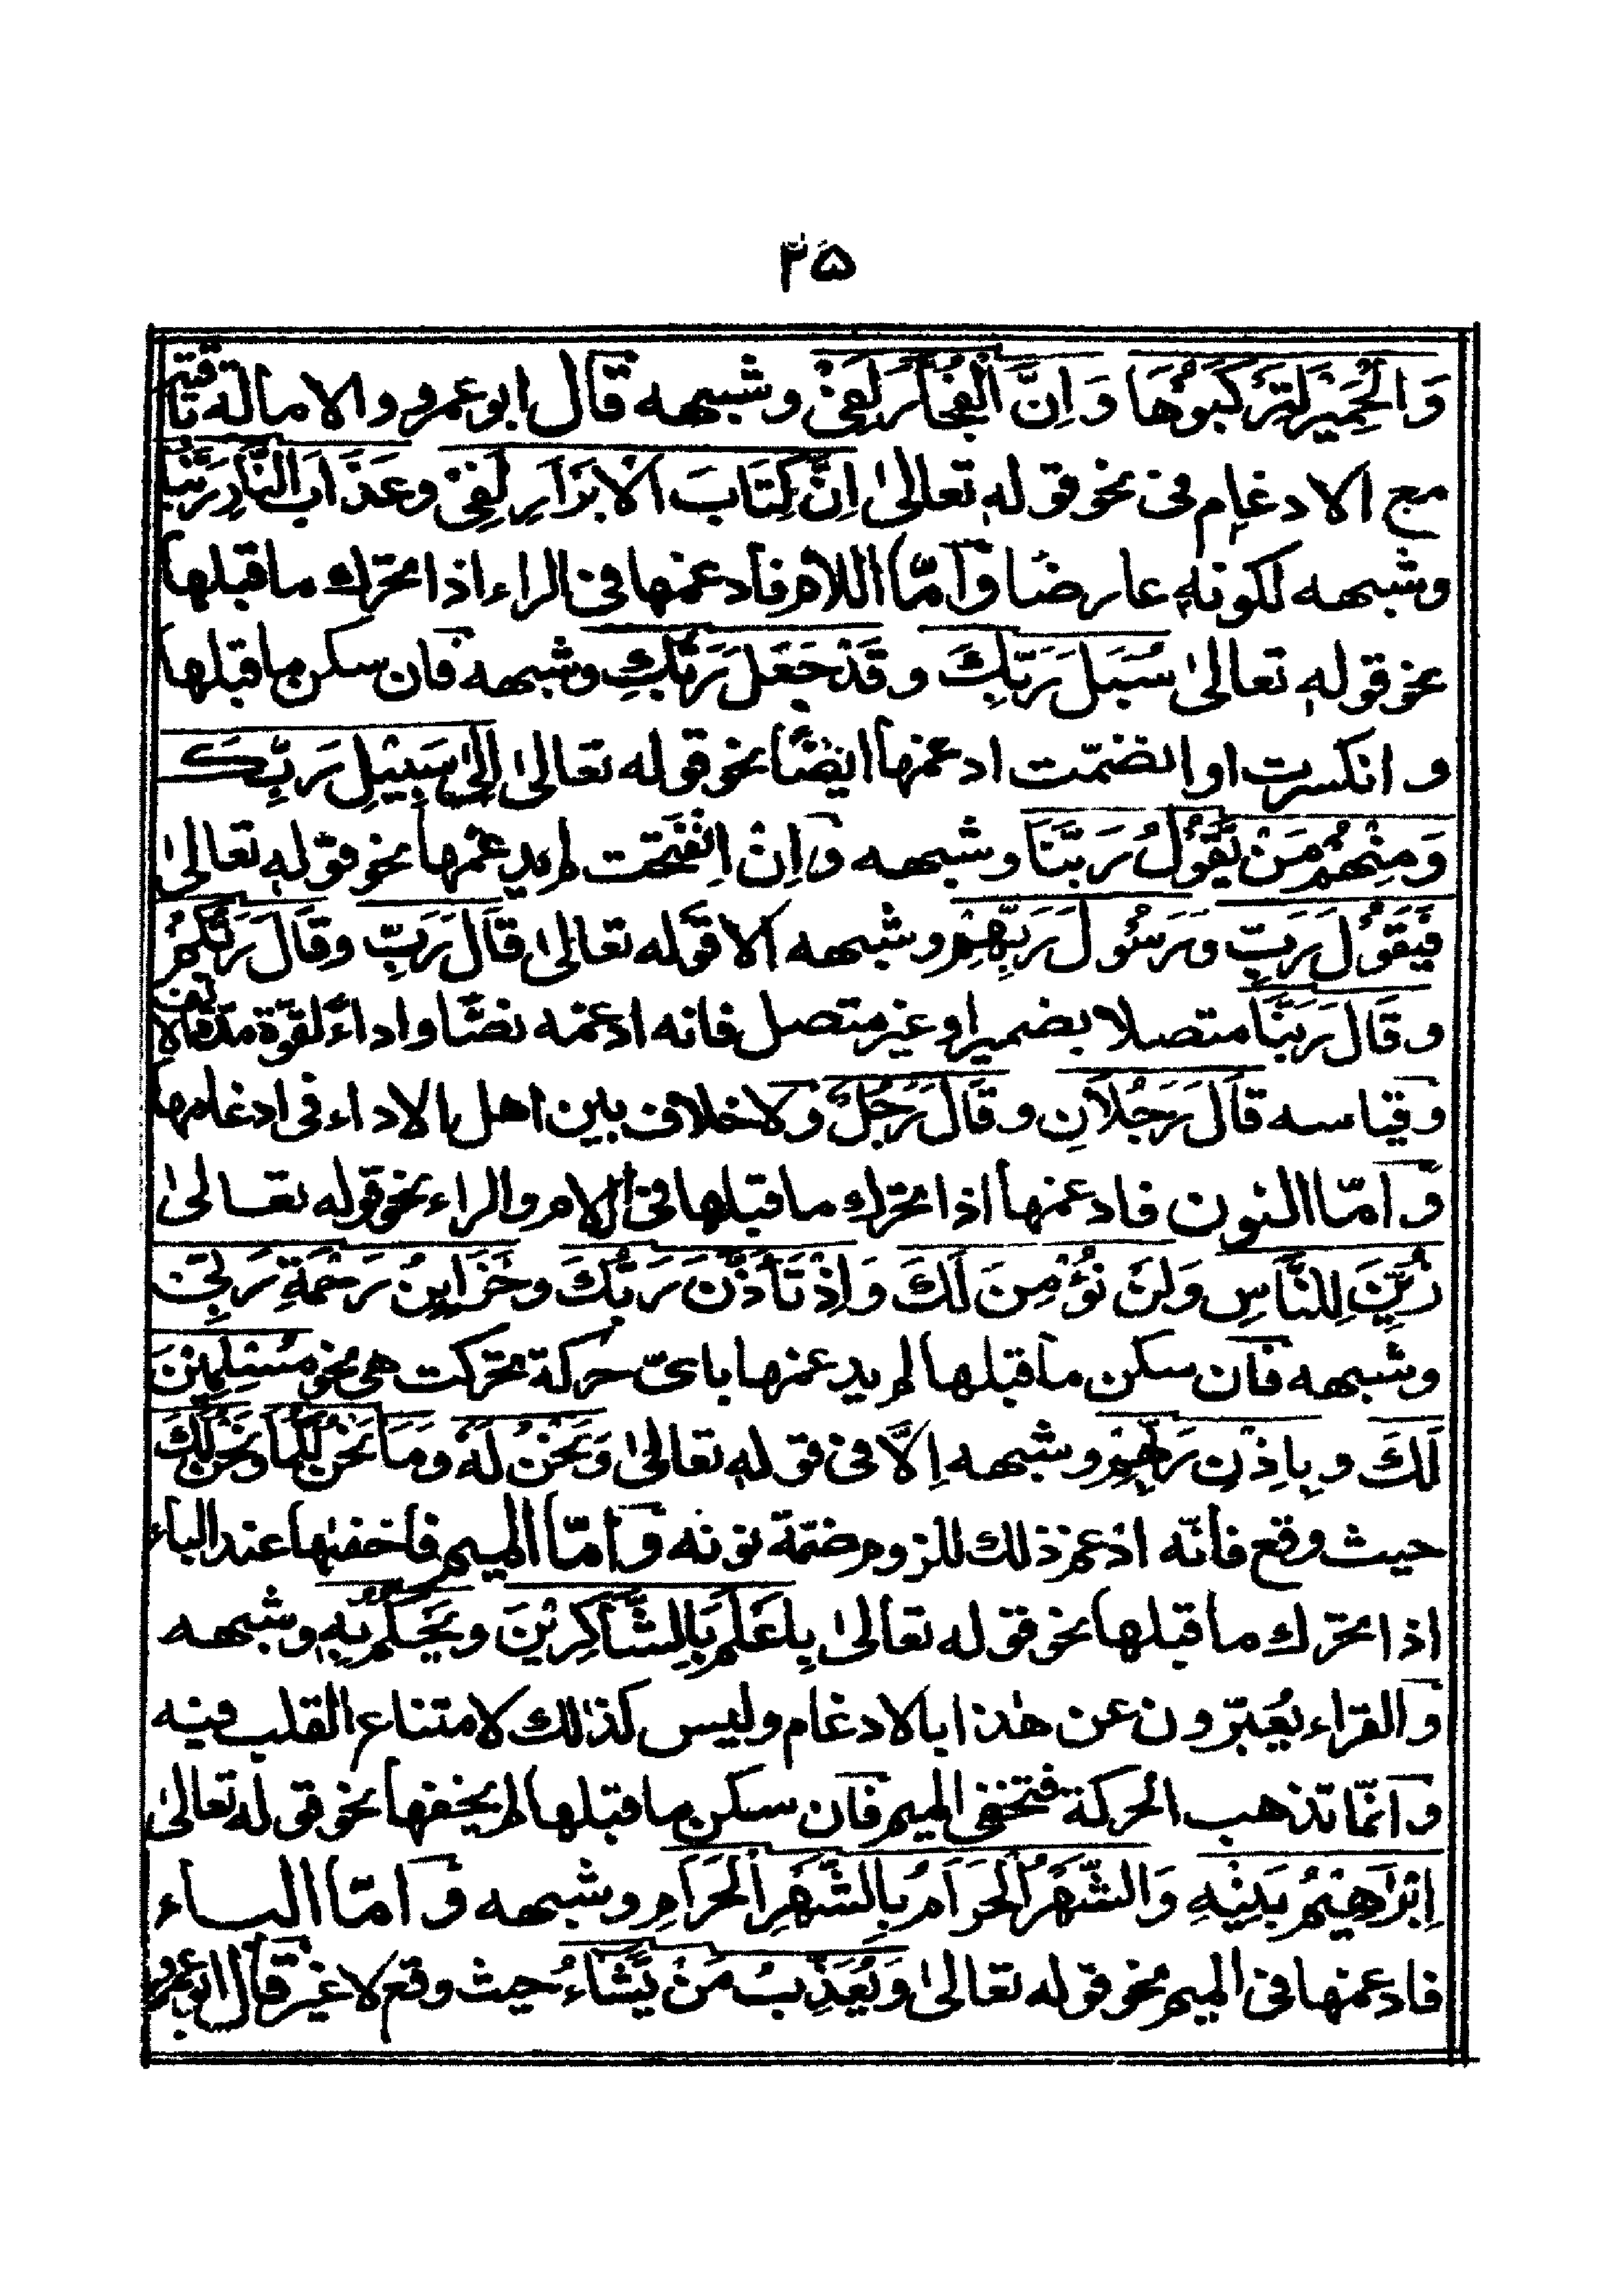 ٢٥
وَالْحَمِيْرَ لِتَرْكَبُوْهَا وَاِنَّ الْفُجَّارَ لَفِيْ وشبهه قال ابو عمرو والامالة باقية
مع الادغام فى نحو قوله تعالىٰ اِنَّ كِتَابَ الْاَبْرَارِ لَفِيْ وعَذَابَ النَّارِ رَبَّنَا
وشبهه لكونه عارضا وامّا اللام فادغمها فى الراء اذا تحرّك ما قبلها
نحو قوله تعالىٰ سُبُلَ رَبِّكِ وقَدْ جَعَلَ رَبُّكِ وشبهه فان سكن ما قبلها
وانكسرت او انضمّت ادغمها ايضًا نحو قوله تعالىٰ اِلىٰ سَبِيْلِ رَبِّكَ
وَمِنْهُمْ مَنْ يَّقُوْلُ رَبَّنَا وشبهه وَاِنْ اِنْفَتَحَت لم يدغمها نحو قوله تعالىٰ
فَيَقُوْلَ رَبِّ ورَسُوْلَ رَبِّهِمْ وشبهه الا قوله تعالىٰ قَالَ رَبِّ وقَالَ رَبُّكُمْ
وقَالَ رَبُّنَا متصلا بضمير او غير متصل فانه ادغمه نصًّا واداءً لقوة مدّة الالف
وقياسه قَالَ رَجُلَانِ وقَالَ رَجُلٌ ولا خلاف بين اهل الاداء فى ادغامها
وامّا النون فادغمها اذا تحرّك ما قبلها فى اللام والراء نحو قوله تعالىٰ
زُيِّنَ لِلنَّاسِ وَلَنْ نُؤْمِنَ لَكَ وَاِذْ تَاَذَّنَ رَبُّكَ وخَزَايِنُ رَحْمَةِ رَبِّىْ
وشبهه فان سكن ما قبلها لم يدغمها باىّ حركة تحركت هى نحو مُسْلِمِيْنَ
لَكَ وبِاِذْنِ رَبِّهِمْ وشبهه اِلَّا فى قوله تعالىٰ وَنَحْنُ لَهٗ ومَا نَحْنُ لَكُمَا ونَحْنُ لَكَ
حيث وقع فانّه ادغم ذلك للزوم ضمّة نونه وامّا الميم فاخفٰها عند الباء
اذا تحرّك ما قبلها نحو قوله تعالىٰ بِاَعْلَمَ بِالشَّاكِرِيْنَ ويَحْكُمُ بِهٖ وشبهه
والقراء يُعَبّرون عن هٰذا بالادغام وليس كذٰلك لامتناع القلب فيه
وانّما تذهب الحركة فتخفى الميم فان سكن ما قبلها لم يخفها نحو قوله تعالىٰ
اِبْرَاهِيْمُ بَنِيْهِ وَالشَّهْرُ الْحَرَامُ بِالشَّهْرِ الْحَرَامِ وشبهه وامّا البـاء
فادغمها فى الميم نحو قوله تعالىٰ وَيُعَذِّبُ مَنْ يَّشَاءُ حيث وقع لا غير قال ابو عمرو